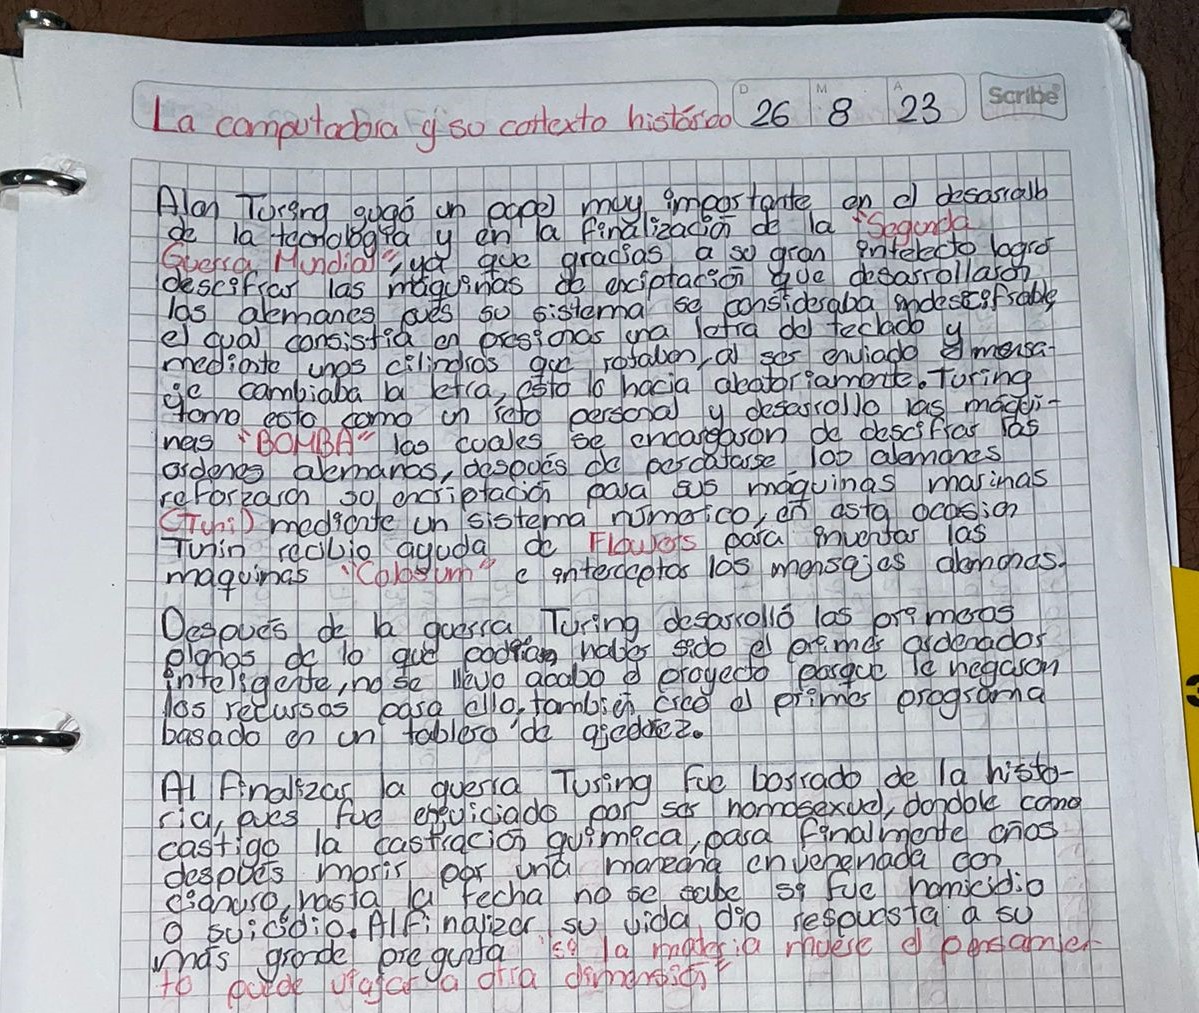 La computadora y su contexto histórico
D 26 M 8 A 23
Scribe
Alan Turing gugó un papel muy importante en el desarrallo
de la tecnología y en la finalización de la "Segunda
Guerra Mundial", ya que gracias a su gran intelecto logro
descifrar las máquinas de enciptación que desarrollaron
los alemanes pues su sistema se consideraba indescifrable
el qual consistía en presionar una letra del teclado y
mediante unos cilindros que rotaban, al ser enviado el mensa-
je cambiaba la letra, esto lo hacia aleatoriamente. Turing
tomo esto como un reto personal y desarrollo las máqui-
nas "BOMBA" las cuales se encargaron de descifrar las
ordenes alemanas, después de percatarse los alemanes
reforzaron su encriptación para sus máquinas marinas
(Tuni) mediante un sistema númerico, en esta ocasión
Turin recibio aguda de Flowers para inventar las
maquinas "Colosum" e interceptar los mensajes alemanes.
Después de la guerra Turing desarrolló los primeros
planos de lo que podrían haber sido el primer ordenador
inteligente, no se llevo acabo el proyecto porque le negaron
los recursos para ello, también creo el primer programa
basado en un tablero de ajedrez.
Al Finalizar la guerra Turing Fue borrado de la histo-
ria, pues fue enjuiciado por ser homosexual, dandole como
castigo la castración química, para finalmente años
despúes morir por una manzana envenenada con
cianuro, hasta la fecha no se sabe si fue homicidio
o suicidio. Al Finalizar su vida dio respuesta a su
más grande pregunta "si la materia muere el pensamien-
to puede viajar a otra dimensión"